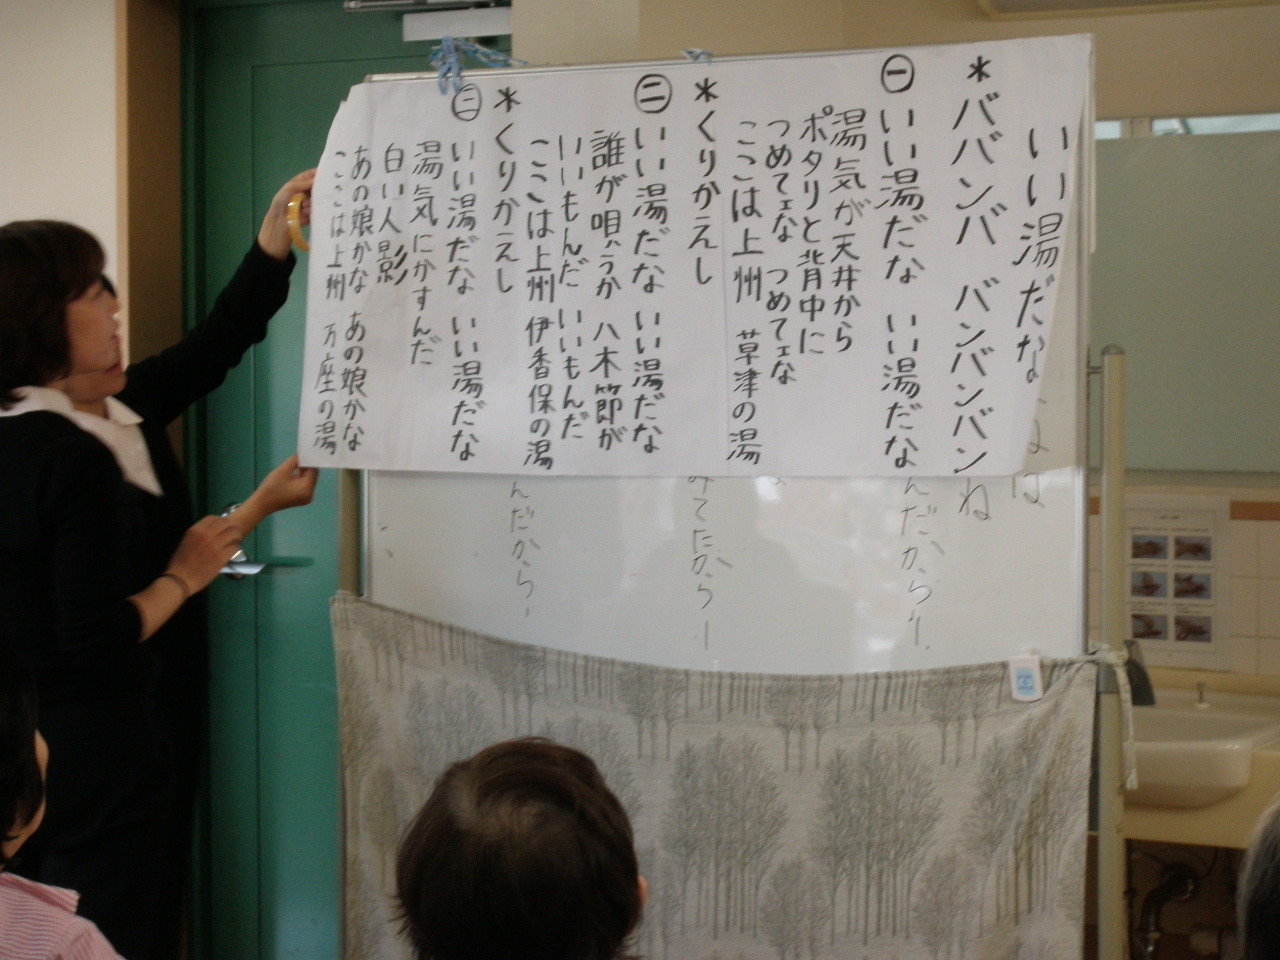 いい湯だな
＊ババンバ バンバンバンバン
㊀いい湯だな いい湯だな
湯気が天井から
ポタリと背中に
つめてェな つめてェな
ここは上州 草津の湯
＊くりかえし
㊁いい湯だな いい湯だな
誰が唄うか 八木節が
いいもんだ いいもんだ
ここは上州 伊香保の湯
＊くりかえし
㊂いい湯だな いい湯だな
湯気にかすんだ
白い人影
あの娘かな あの娘かな
ここは上州 万座の湯
ね
んだからー
みてたからー
んだからー